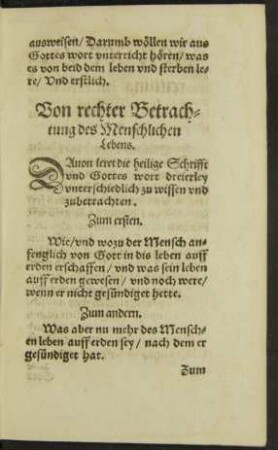 ausweisen/ Darumb wöllen wir aus
Gottes wort vnterricht hören/ was
es von beid dem leben vnd sterben le-
re/ Vnd erstlich.
Von rechter Betrach-
tung des Menschlichen
Lebens.
DAuon leret die heilige Schrifft
vnd Gottes wort dreierley
vnterschiedlich zu wissen vnd
zubetrachten.
Zum ersten.
Wie/ vnd wozu der Mensch an-
fenglich von Gott in dis leben auff
erden erschaffen/ vnd was sein leben
auff erden gewesen/ vnd noch were/
wenn er nicht gesündiget hette.
Zum andern.
Was aber nu mehr des Mensch-
en leben auff erden sey/ nach dem er
gesündiget hat.
Zum